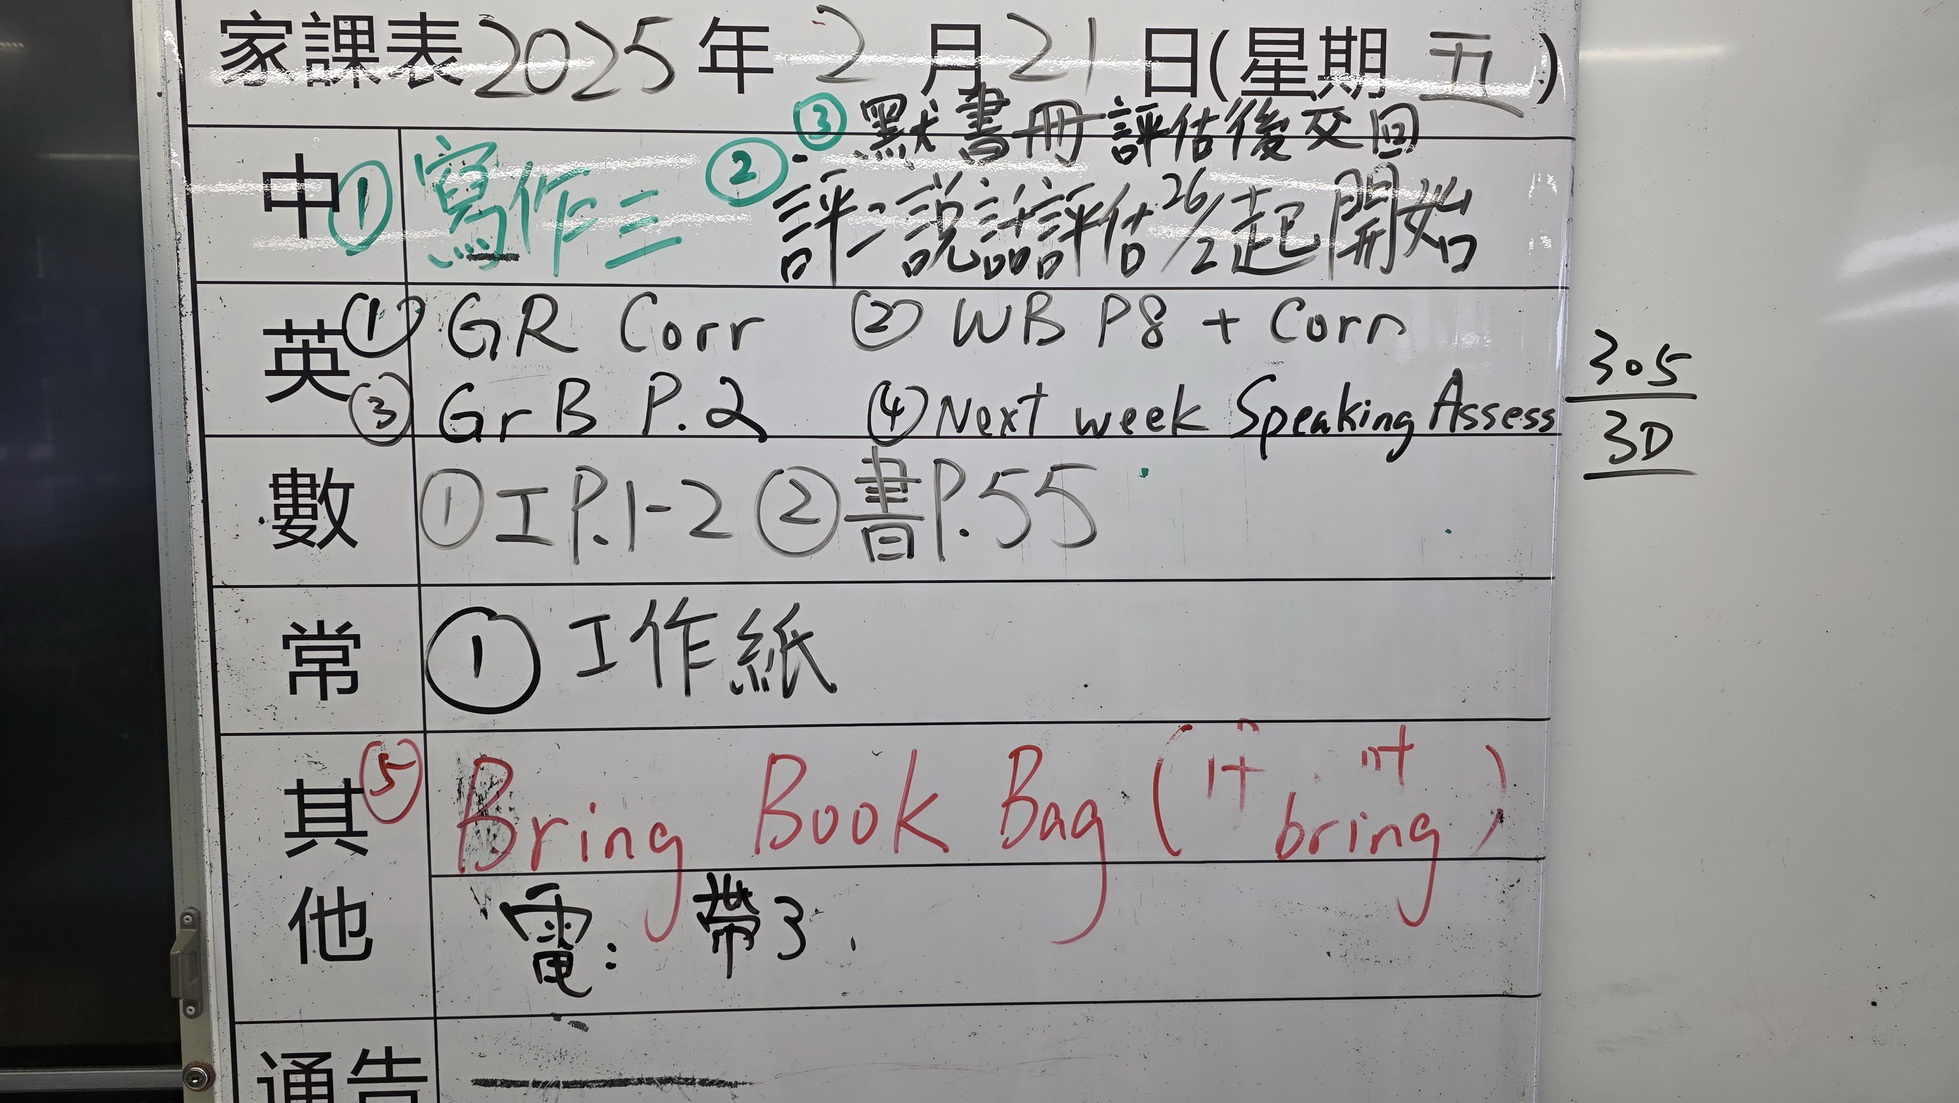 家課表 2025 年 2 月 21 日(星期 五)
③ 默書冊 評估後交回
中 ① 寫作三 ② 評二說話評估 26/2 起開始
英 ① GR Corr ② WB P8 + Corr
③ GrB P.2 ④ Next week Speaking Assess
305
3D
數 ① 工P.1-2 ② 書P.55
常 ① 工作紙
其他 ⑤ Bring Book Bag ( bring )
電: 帶3
通告